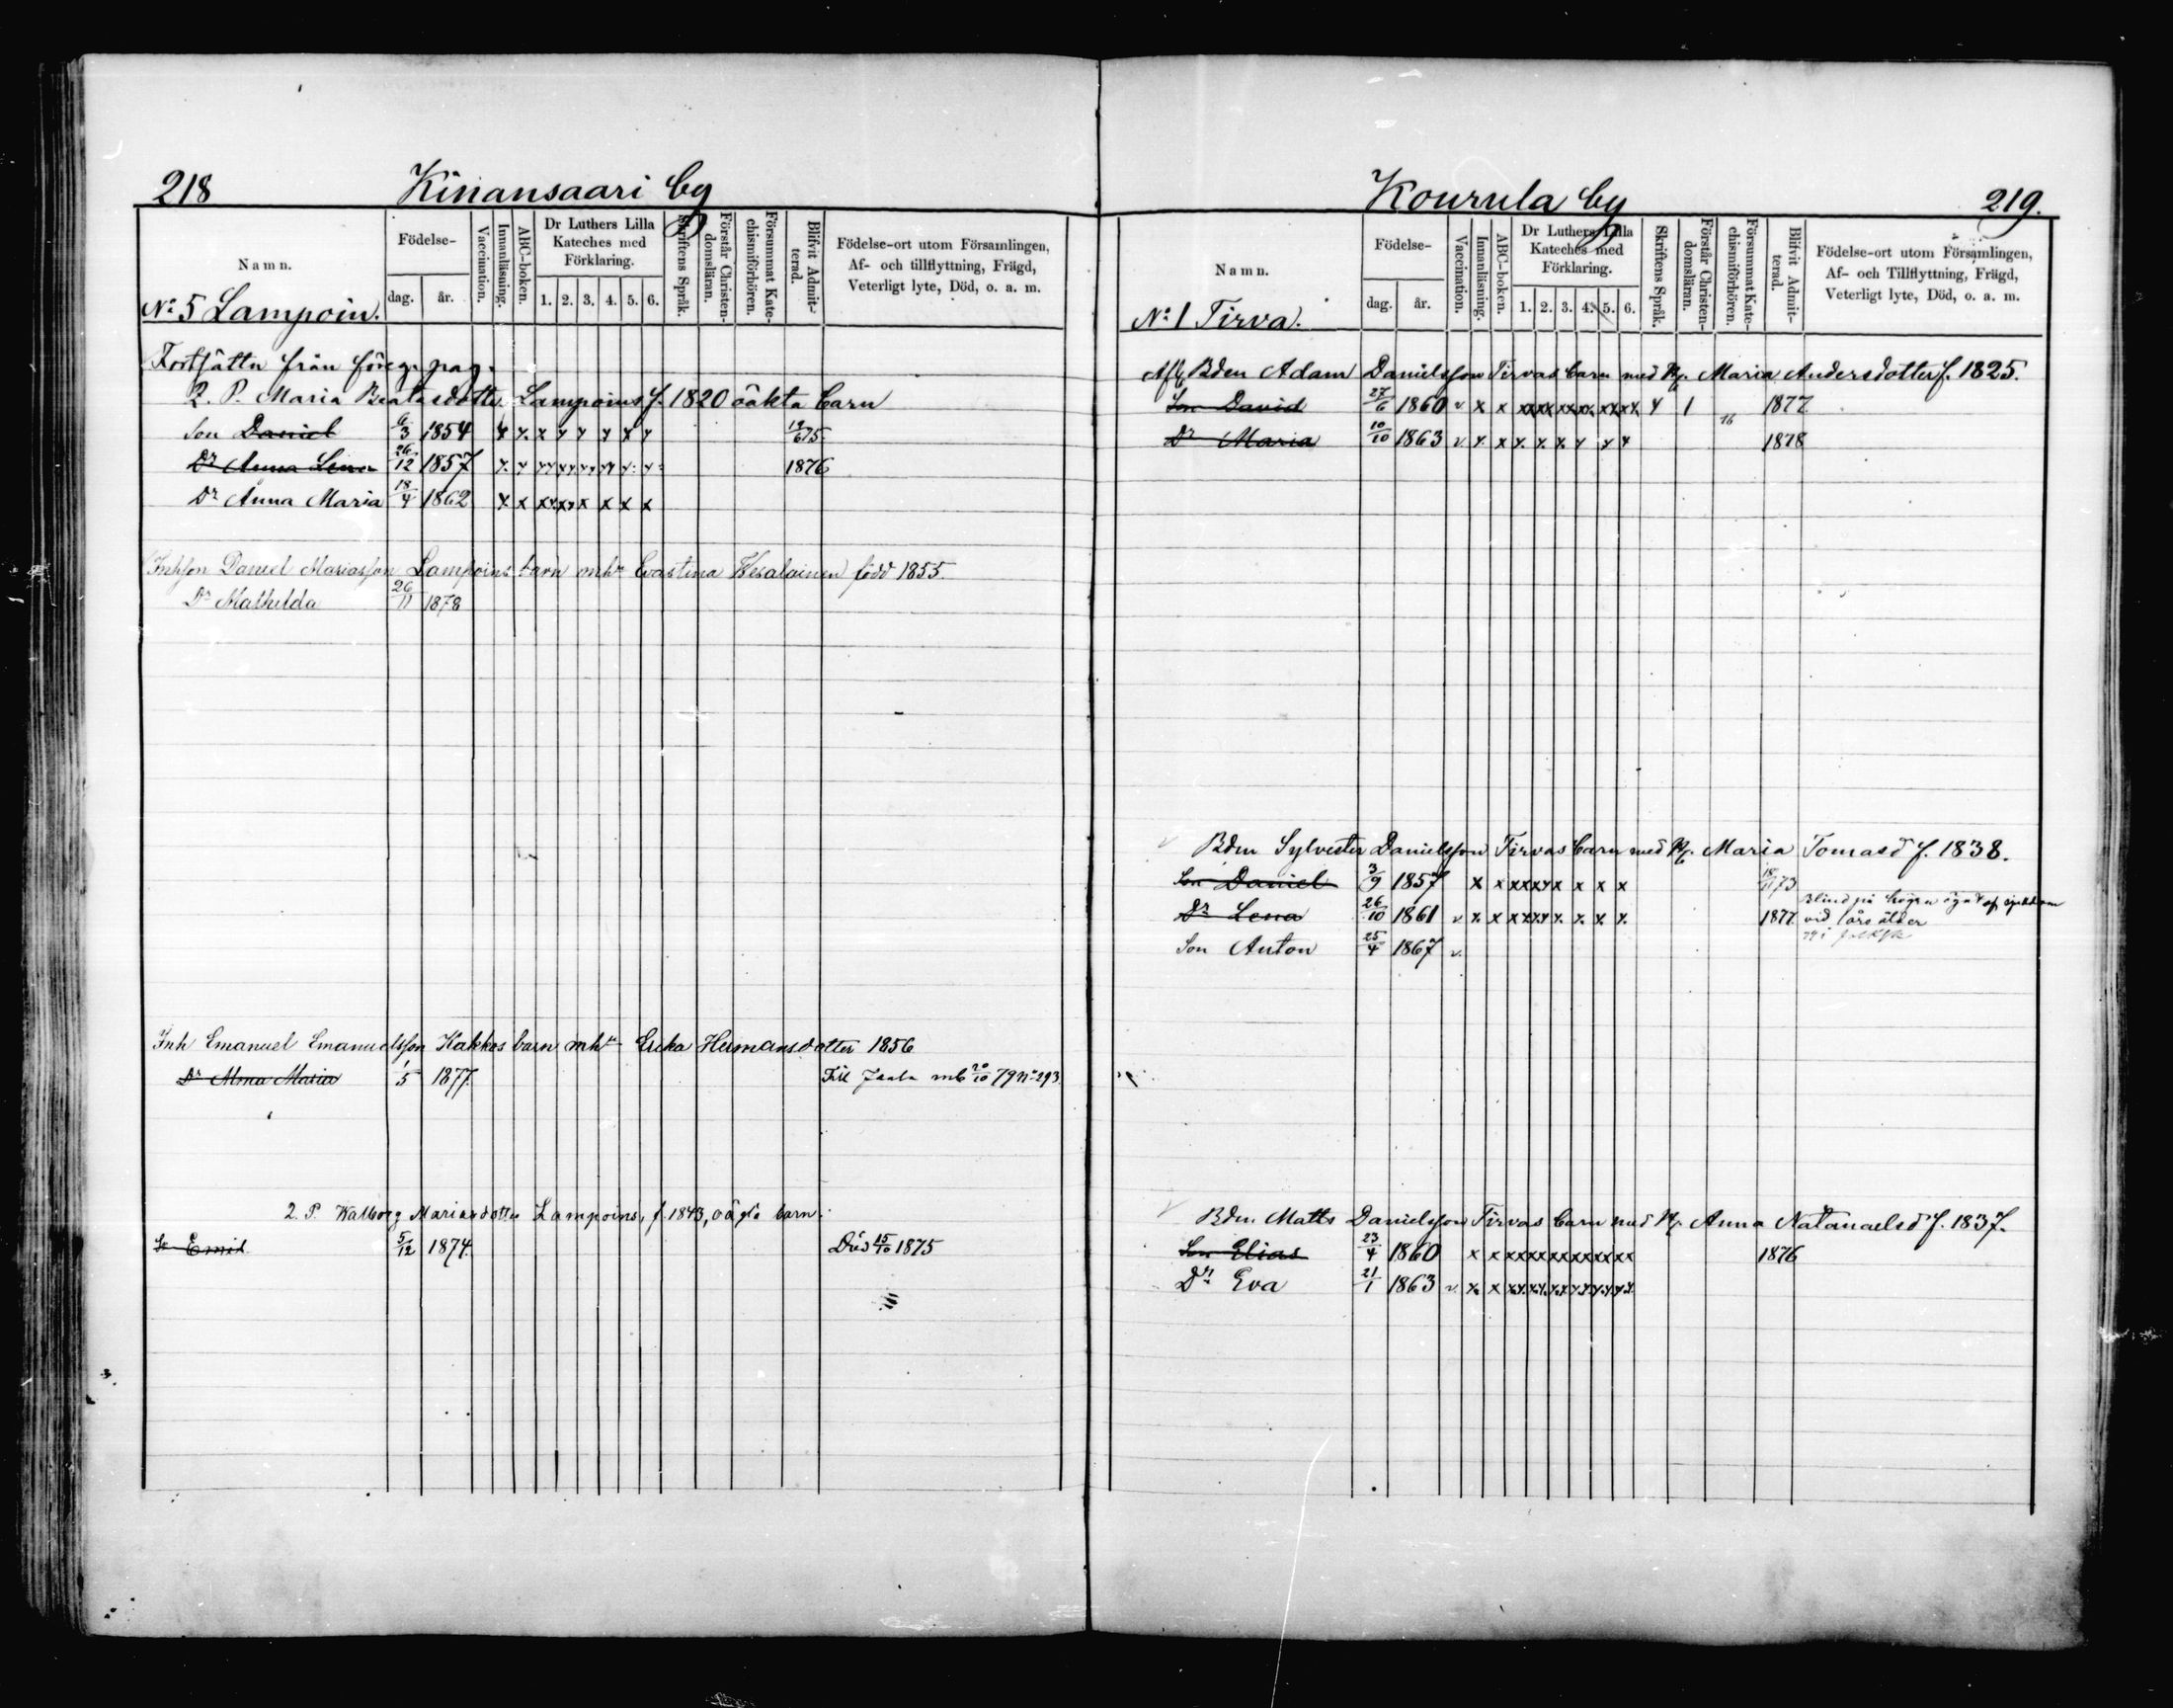 218 Kinansaari by
Namn.
Födelse-
dag. år.
Vaccination.
Innanläsning.
ABC-boken.
Dr Luthers Lilla
Kateches med
Förklaring.
1. 2. 3. 4. 5. 6.
Skriftens Språk.
Förstår Christen-
domsläran.
Försummat Kate-
chismiförhören.
Blifvit Admit-
terad.
Födelse-ort utom Församlingen,
Af- och tillflyttning, Frägd,
Veterligt lyte, Död, o. a. m.
No 5 Lampoin.
från föreg. pag.
Q. P. Maria Beatasdotter Lampoins f. 1820 oäkta barn
Son Daniel 6/3 1854 x x x x x x x x 75
Dr Anna Lena 26/12 1857 1876
Dr Anna Maria 18/4 1862
Daniel Mariasson Lampoins barn mhu Evastina Wesalainen född 1855.
Dr Mathilda 26/11 1878
Inh Emanuel Emanuelsson Kakkos barn mhu Erika Hermansdotter 1856
Dr Maria 1/5 1877 Till Jaala mb 20/10 79 no 293
Q. P. Walborg Mariasdotter Lampoins, f. 1843, barn.
Emil 5/12 1874 Död 15/10 1875
Kourula by 219.
Namn.
Födelse-
dag. år.
Vaccination.
Innanläsning.
ABC-boken.
Dr Luthers Lilla
Kateches med
Förklaring.
1. 2. 3. 4. 5. 6.
Skriftens Språk.
Förstår Christen-
domsläran.
Försummat Kate-
chismiförhören.
Blifvit Admit-
terad.
Födelse-ort utom Församlingen,
Af- och Tillflyttning, Frägd,
Veterligt lyte, Död, o. a. m.
No 1 Tirva.
Bden Adam Danielsson Tirvas barn med Maria Andersdotter f. 1825.
Son David 27/6 1860 v x x 1 76 1877
Dr Maria 10/10 1863 v 1878
Bden Sylvester Danielsson Tirvas barn med Maria Tomasd f. 1838.
Son Daniel 3/9 1857 x x 73
Blind på högra ögat af sjukdom
Dr Lena 26/10 1861 v x x 1877 vid års ålder
Son Anton 25/4 1867 v.
Bden Matts Danielsson Tirvas barn med Anna Natanaelsd f. 1837.
Son Elias 23/4 1860 x x xxxxxxxxxxxx 1876
Dr Eva 21/1 1863 v x x